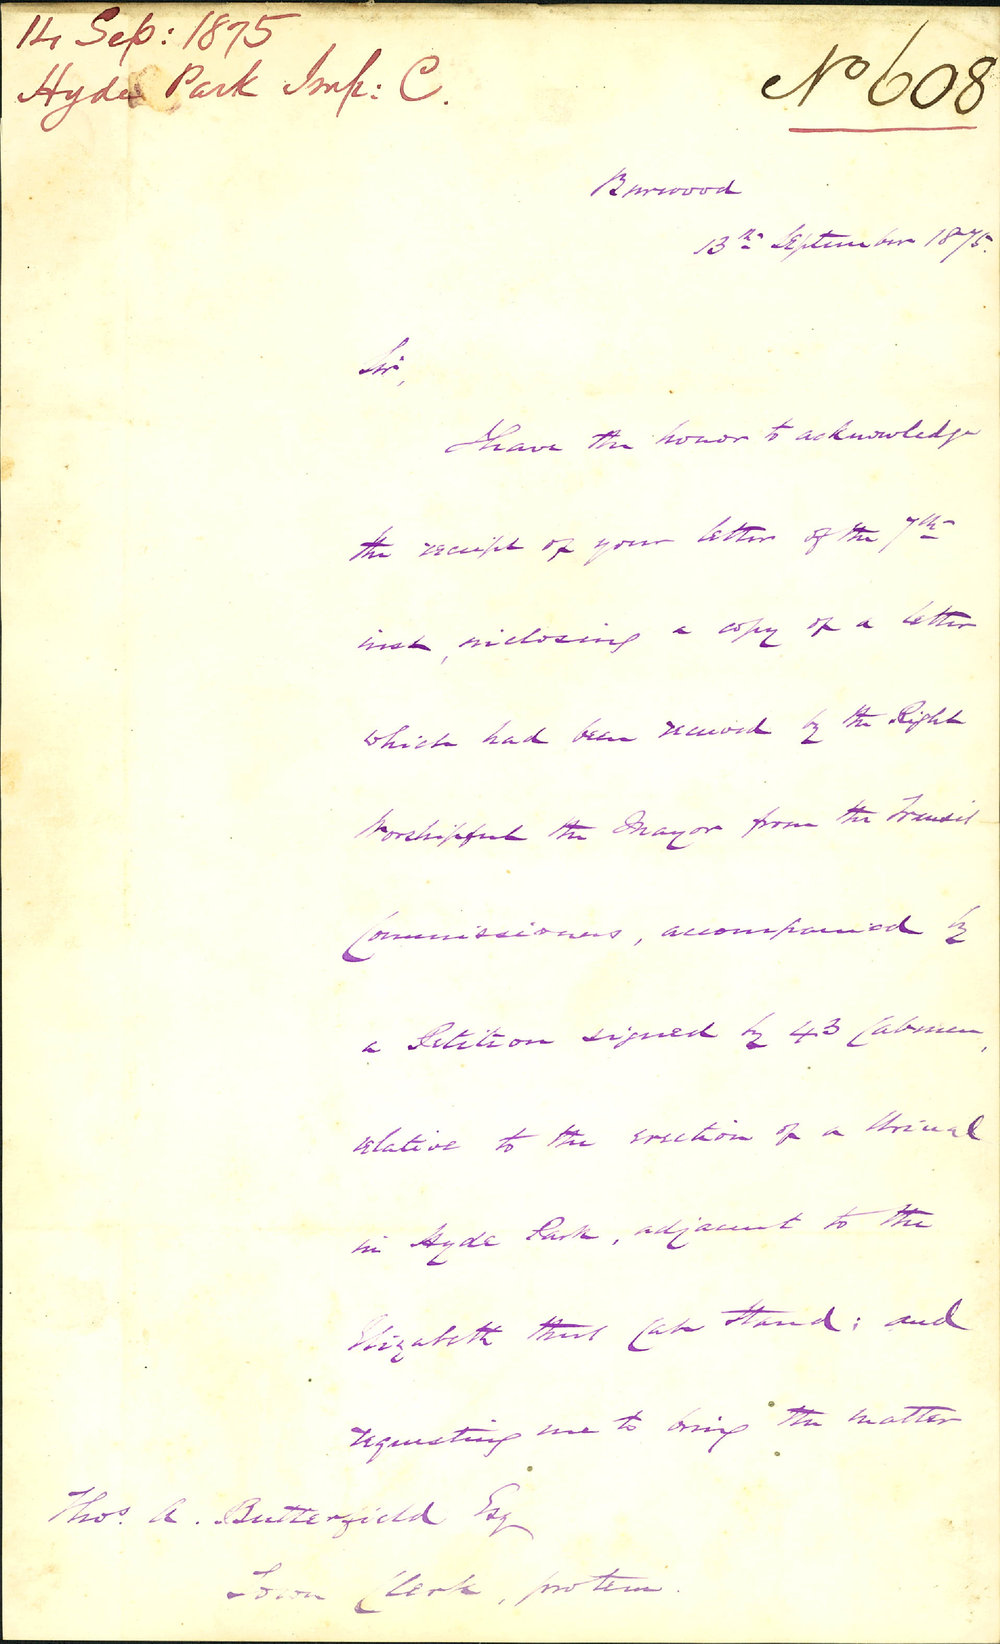 14 Sep: 1875
Hyde Park Imp: C.
No 608
Burwood
13th September 1875.
Sir,
I have the honor to acknowledge
the receipt of your letter of the 7th
inst, inclosing a copy of a letter
which had been received by the Right
Worshipful the Mayor from the Transit
Commissioners, accompanied by
a Petition signed by 43 Cabmen,
relative to the erection of a Urinal
in Hyde Park, adjacent to the
Elizabeth Street Cab Stand; and
requesting me to bring the matter
Thos. A. Butterfield Esq
Town Clerk, protem.